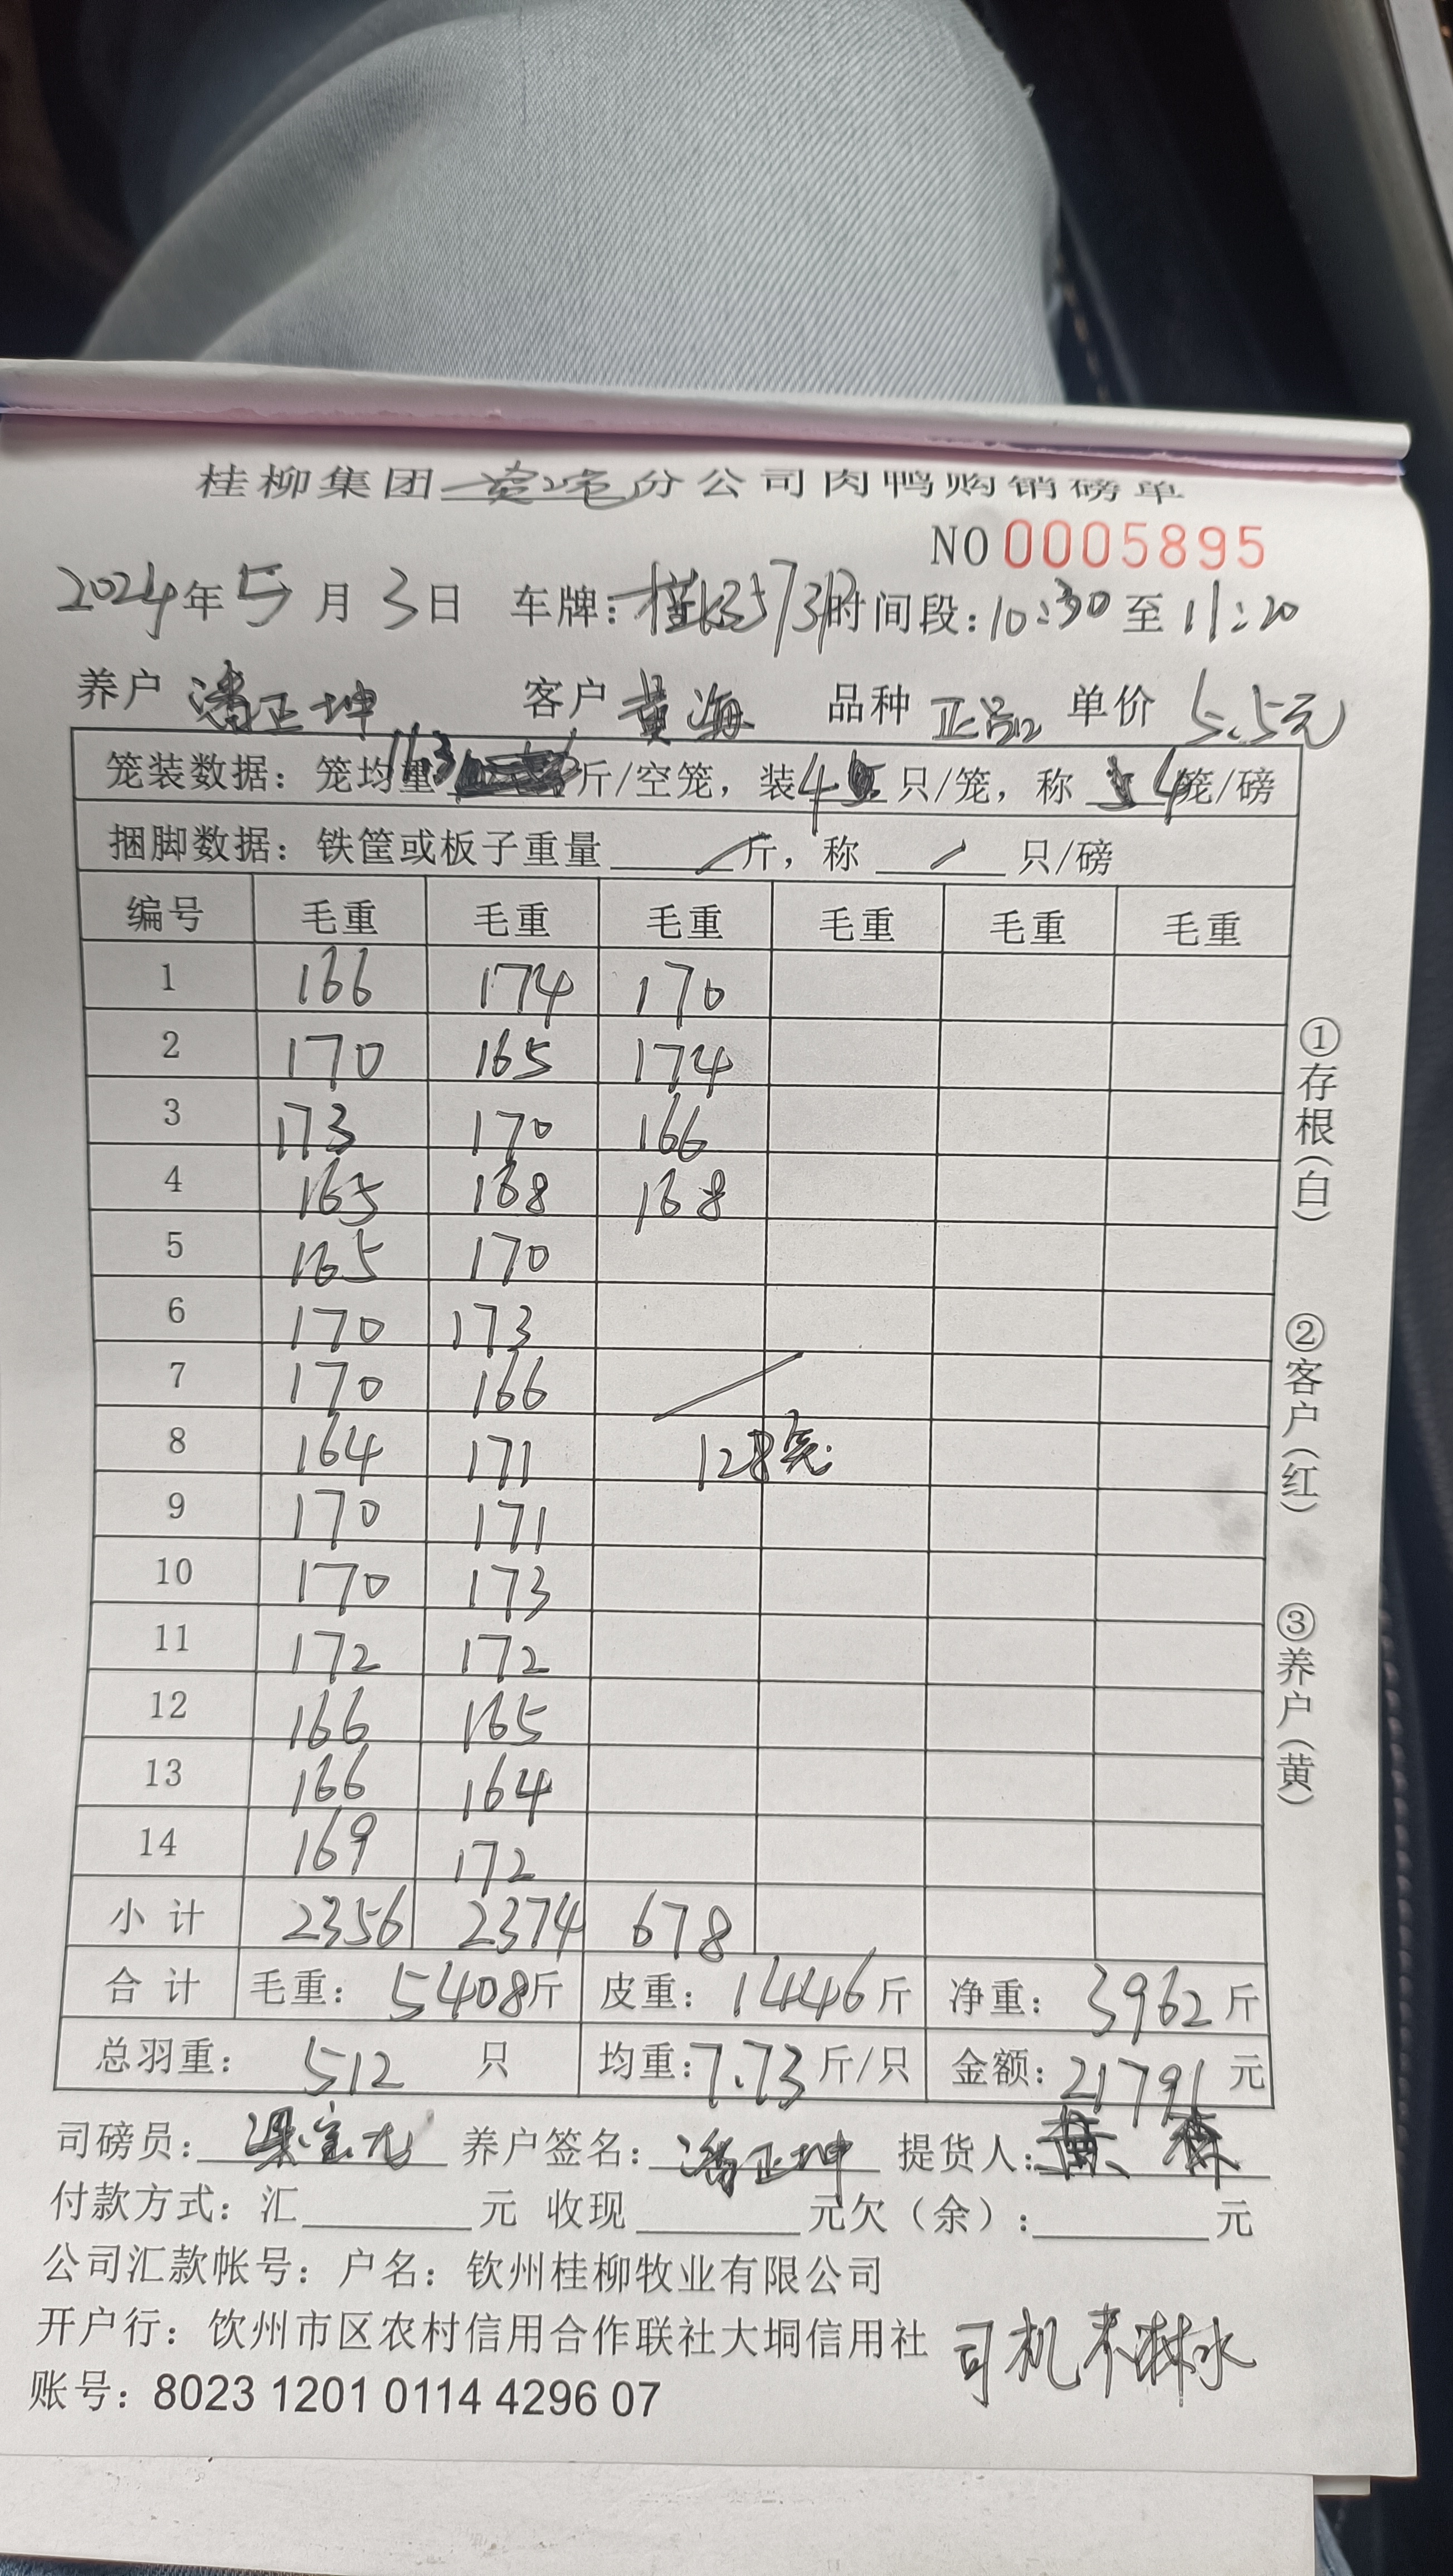 桂柳集团 分公司肉鸭购销磅单
NO 0005895
2024年 5 月 3 日 车牌: 时间段: 10:30 至 11:20
养户 潘正坤 客户 黄海 品种 正品 单价 5.5元
笼装数据: 笼均重 11.3 斤/空笼, 装 4 只/笼, 称 4 笼/磅
捆脚数据: 铁筐或板子重量 / 斤, 称 / 只/磅
编号 毛重 毛重 毛重 毛重 毛重 毛重
1 166 174 170
2 170 165 174
3 173 170 166
4 165 168 168
5 165 170
6 170 173
7 170 166
8 164 171 128笼
9 170 171
10 170 173
11 172 172
12 166 165
13 166 164
14 169 172
小 计 2356 2374 678
合 计 毛重: 5408斤 皮重: 1446斤 净重: 3962斤
总羽重: 512 只 均重: 7.73 斤/只 金额: 21791 元
司磅员: 养户签名: 潘正坤 提货人: 黄
付款方式: 汇 元 收现 元欠(余): 元
公司汇款帐号: 户名: 钦州桂柳牧业有限公司
开户行: 钦州市区农村信用合作联社大垌信用社
账号: 8023 1201 0114 4296 07
司机不淋水
①存根(白)
②客户(红)
③养户(黄)